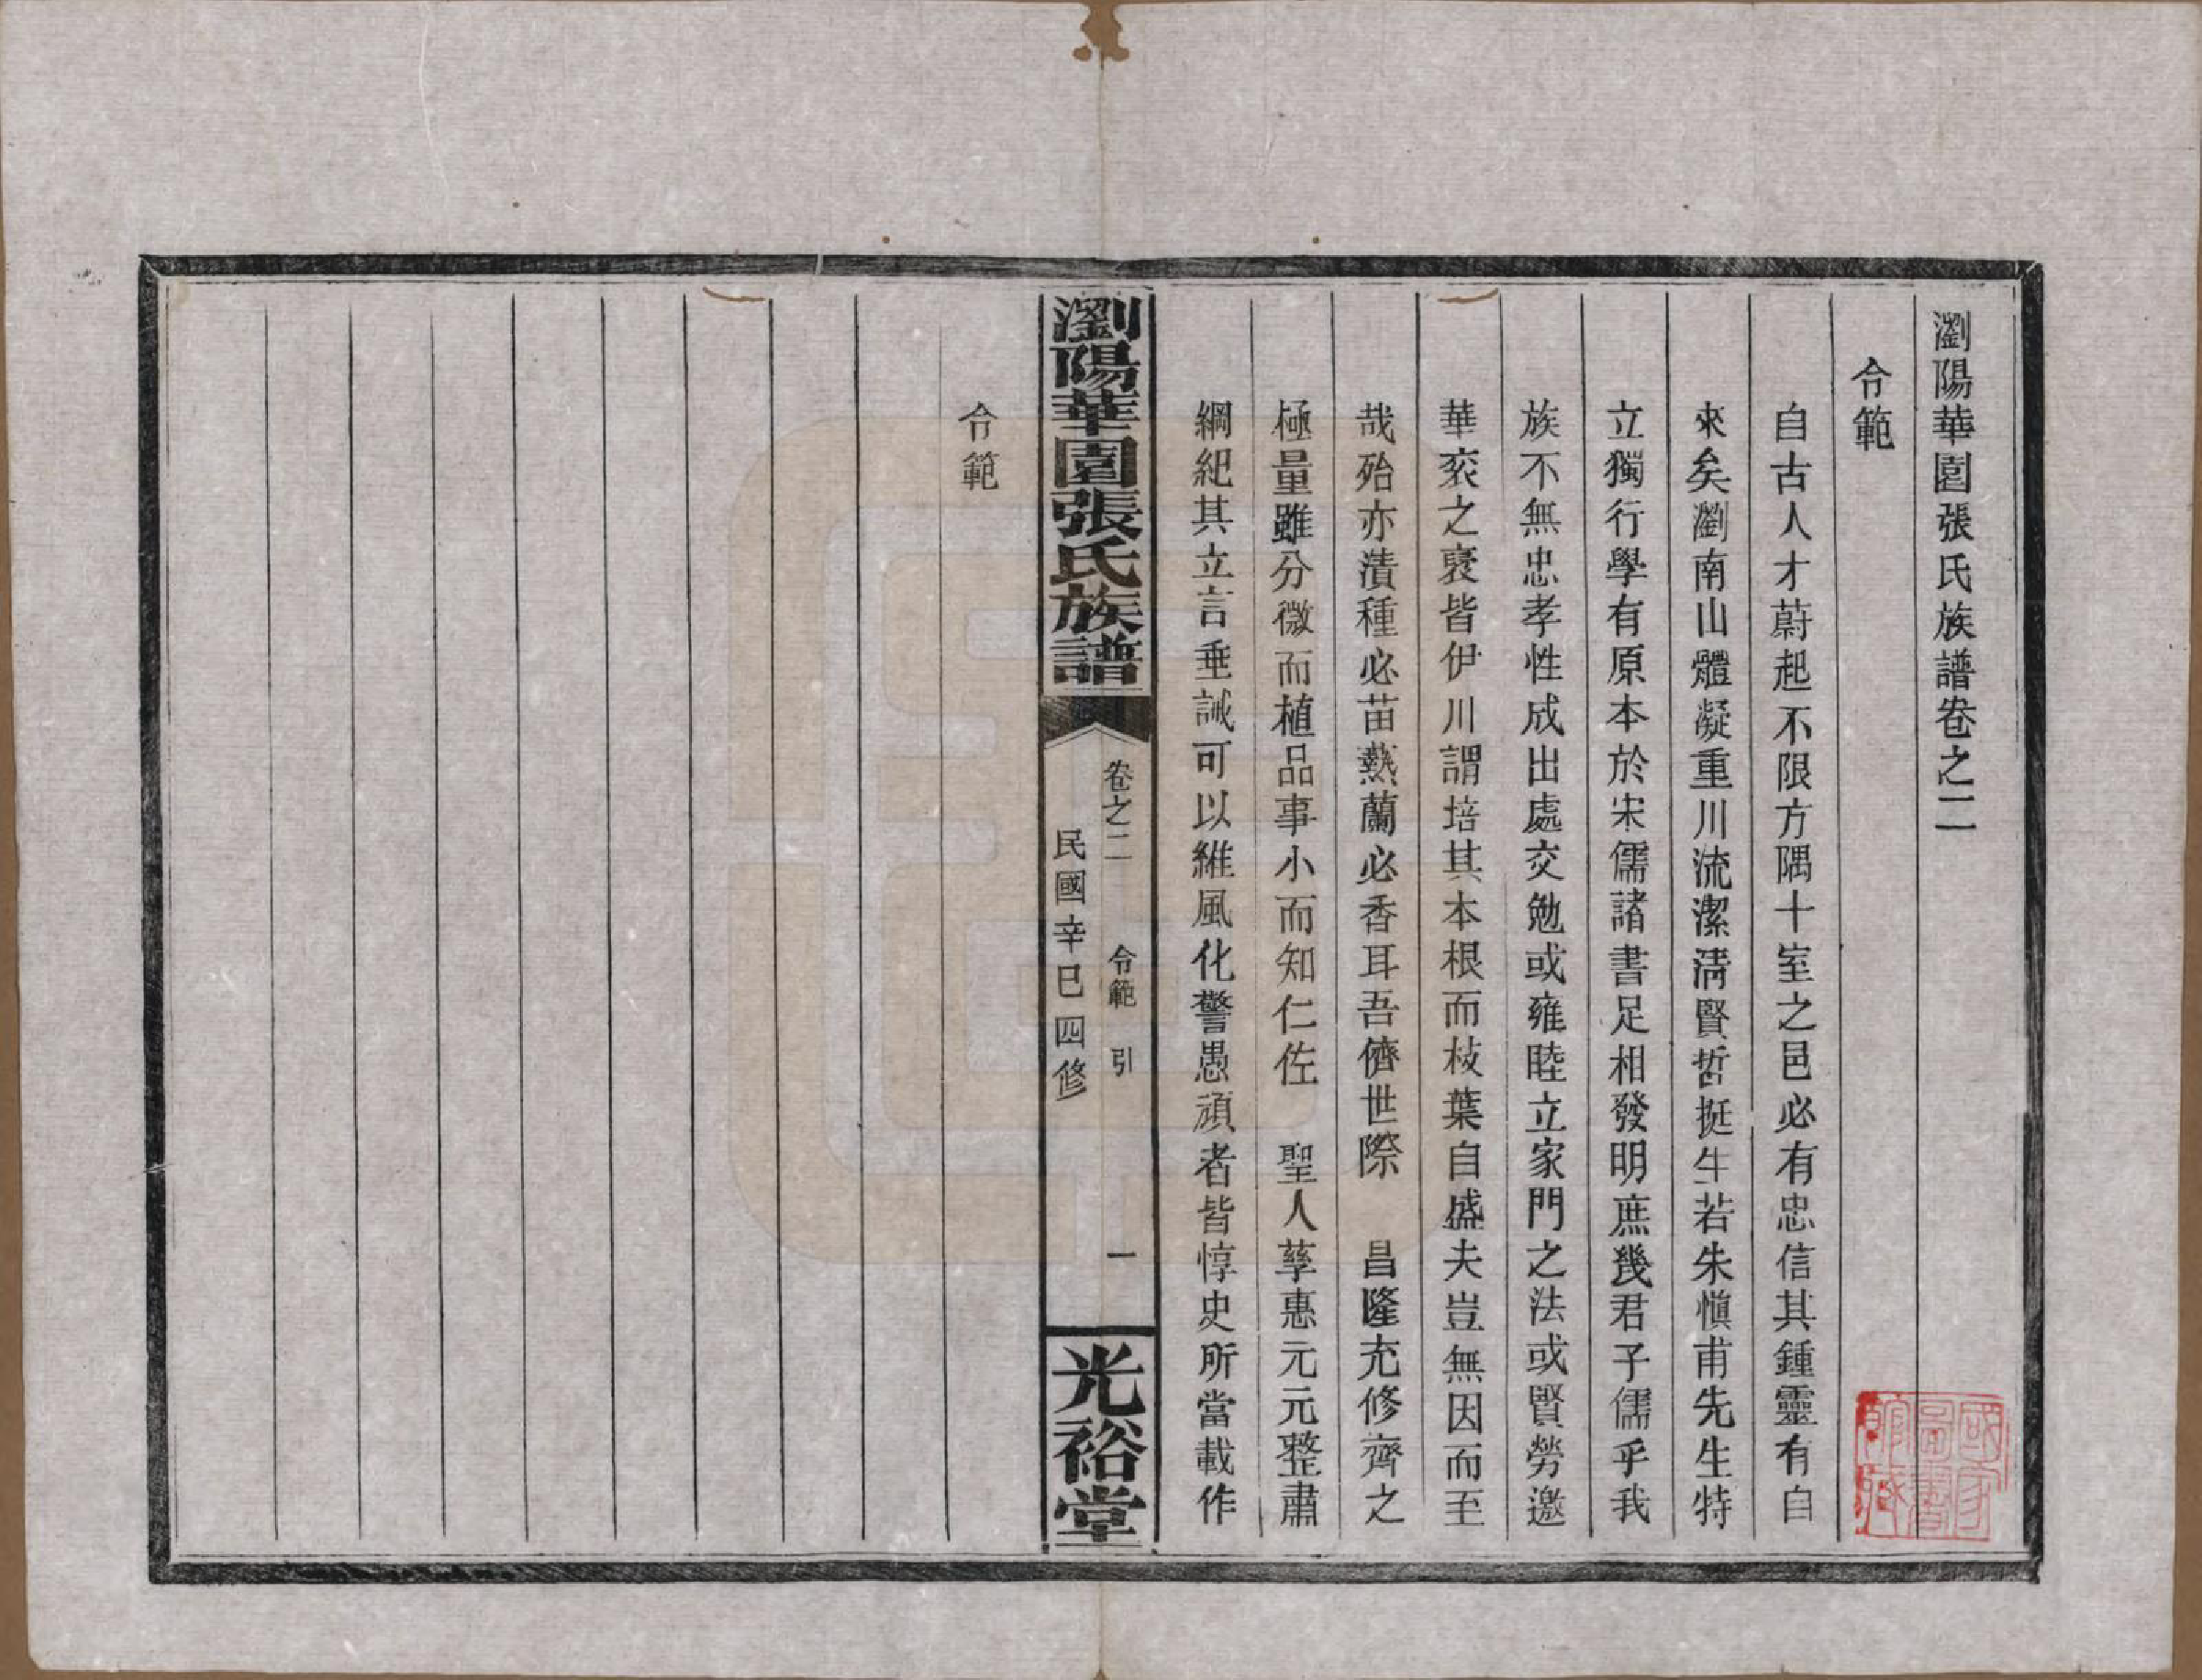 瀏陽華園張氏族譜卷之二
令範
自古人才蔚起不限方隅十室之邑必有忠信其鍾靈有自
來矣瀏南山體凝重川流潔淸賢哲挺生若朱愼甫先生特
立獨行學有原本於宋儒諸書足相發明庶幾君子儒乎我
族不無忠孝性成出處交勉或雍睦立家門之法或賢勞邀
華衮之褒皆伊川謂培其本根而枝葉自盛夫豈無因而至
哉殆亦漬種必苗爇蘭必香耳吾儕世際 昌隆充修齊之
極量雖分微而植品事小而知仁佐 聖人孳惠元元整肅
綱紀其立言垂誡可以維風化警愚頑者皆惇史所當載作
令範
瀏陽華園張氏族譜
卷之二 令範 引 一
民國辛巳四修
光裕堂
國家圖書館藏